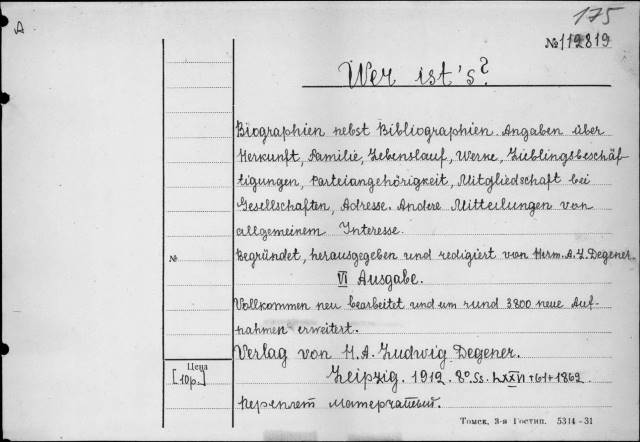 175
A
№ 112819
Wer ist's?
Biographien nebst Bibliographien. Angaben über
Herkunft, Familie, Lebenslauf, Werke, Lieblingsbeschäf-
tigungen, Parteiangehörigkeit, Mitgliedschaft bei
Gesellschaften, Adresse. Andere Mitteilungen von
allgemeinem Interesse.
№
Begründet, herausgegeben und redigiert von Herm. A. L. Degener.
VI Ausgabe.
Vollkommen neu bearbeitet und um rund 3800 neue Auf-
nahmen erweitert.
Verlag von H. A. Ludwig Degener.
Цена
[10р.]
Leipzig. 1912. 8° Ss. LXXVI + 61 + 1862
Переплет матерчатый.
Томск, 3-я Гостип. 5314-31